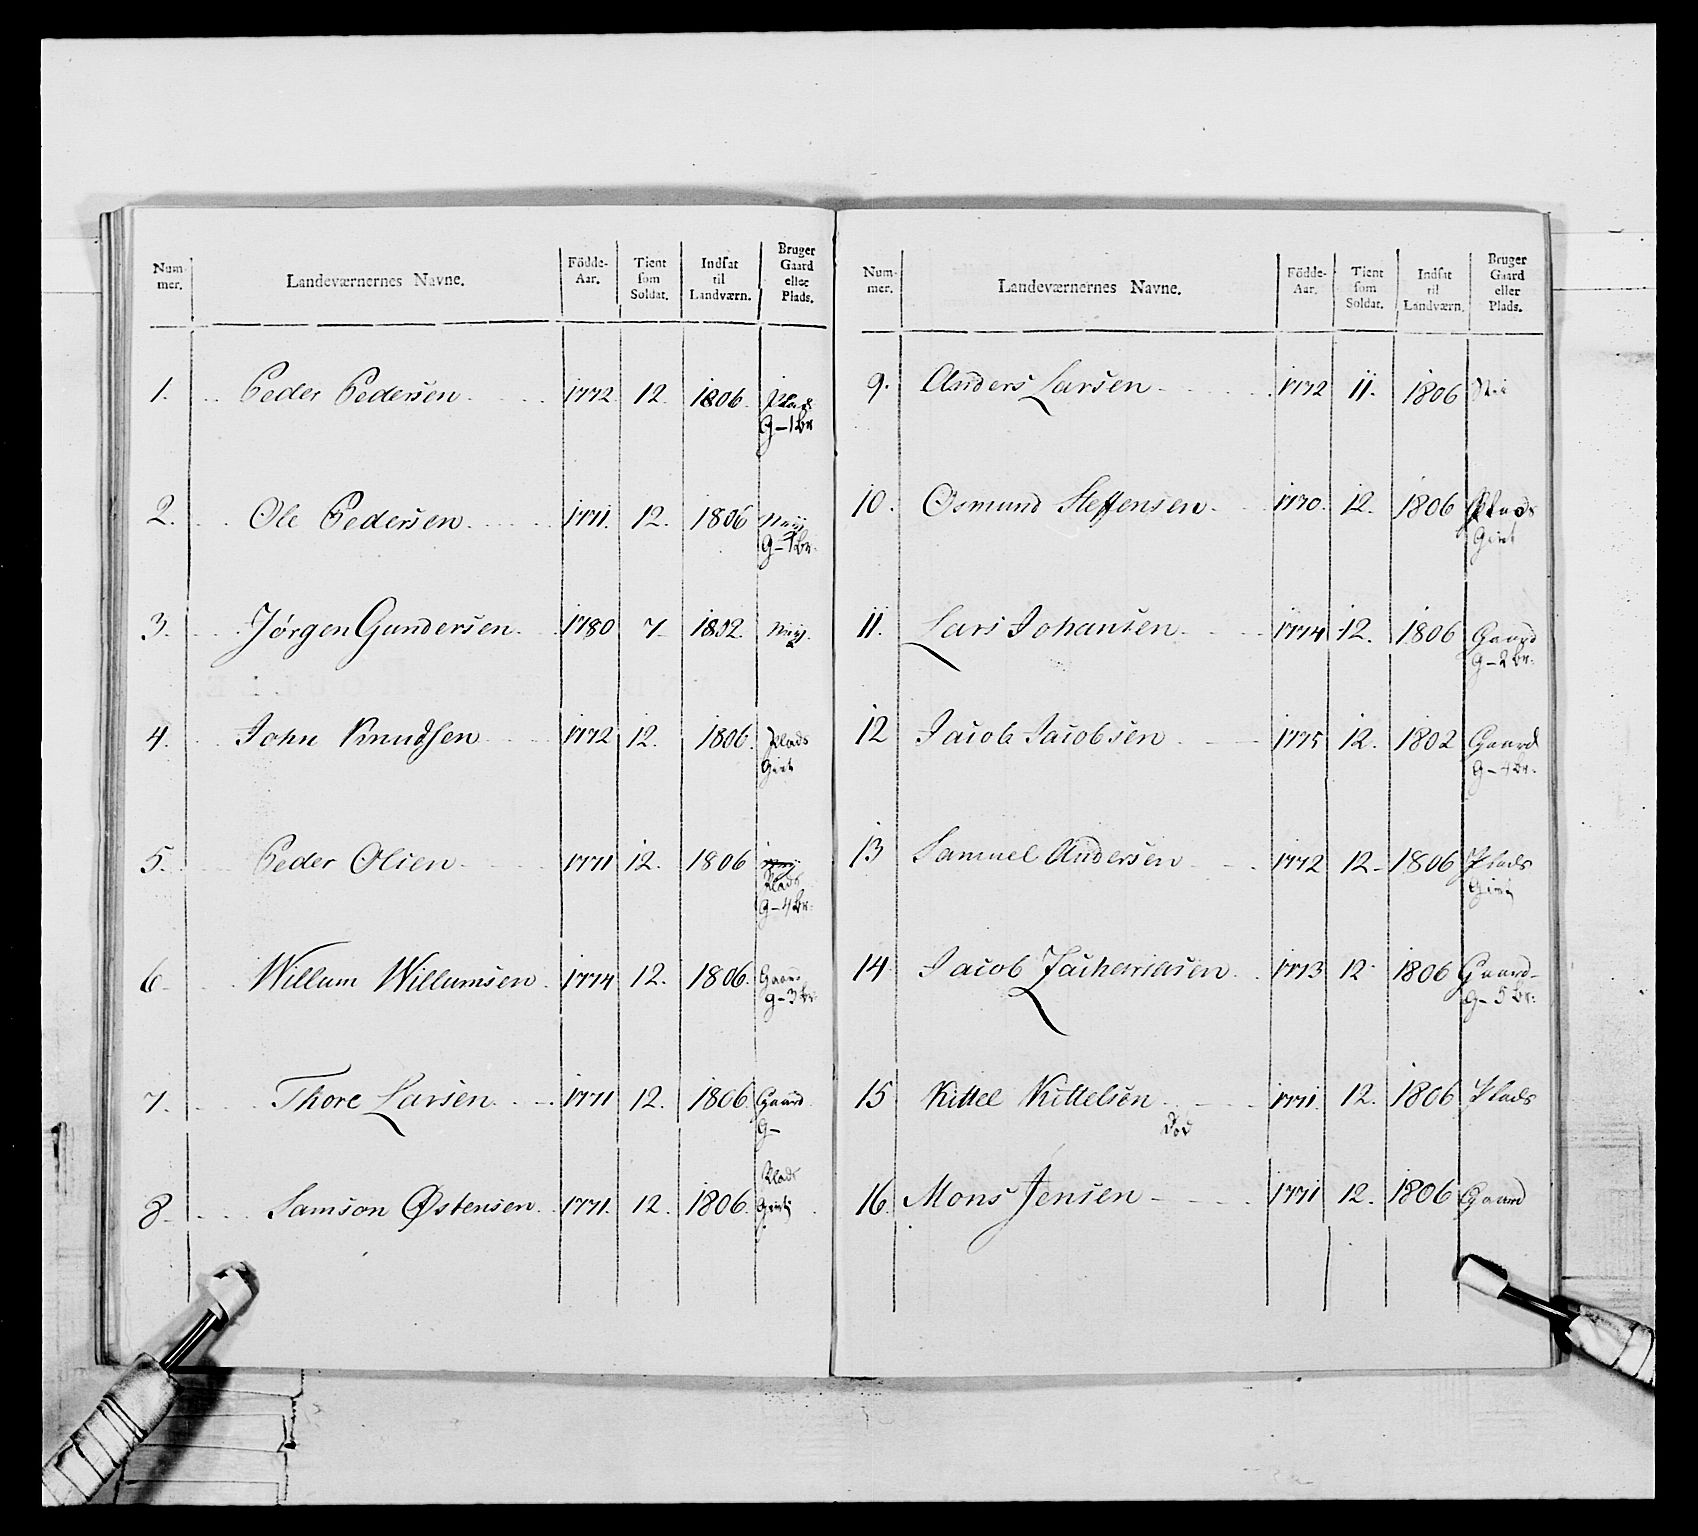 Num-
mer.
Landeværnernes Navne.
Födde-
Aar.
Tient
som
Soldat.
Indsat
til
Landværn.
Bruger
Gaard
eller
Plads.
1. Peder Pedersen 1772 12 1806 Plads
G-1 br
2. Ole Pedersen 1771. 12. 1806 Neij
G-1 br.
3. Jørgen Gundersen 1780 7 1802 Neij.
4. John Knudsen 1772 12. 1806. Plads
Givt
5. Peder Olsen 1771 12. 1806 Neij
Plads
G-4 br.
6 Willum Willumsen 1774 12. 1806. Gaard
G-3 br
7. Thore Larsen 1771 12. 1806 Gaard
G-
8 Samson Østensen 1771. 12. 1806. Plads
Givt
Num-
mer.
Landeværnernes Navne.
Födde-
Aar.
Tient
som
Soldat.
Indsat
til
Landværn.
Bruger
Gaard
eller
Plads.
9. Anders Larsen 1772 11. 1806
10. Osmund Steffensen 1770. 12. 1806 Plads
Givt
11. Lars Johansen 1774 12. 1806 Gaard
G-2 br.
12 Jacob Jacobsen 1775 12. 1802 Gaard
G-4 br.
13 Samuel Andersen 1772 12 1806 Plads
Givt
14 Jacob Zachariasen 1773 12 1806 Gaard
G-5 br:
15 Kittel Kittelsen 1771. 12. 1806 Plads
død
16. Mons Jensen 1771 12. 1806 Gaard